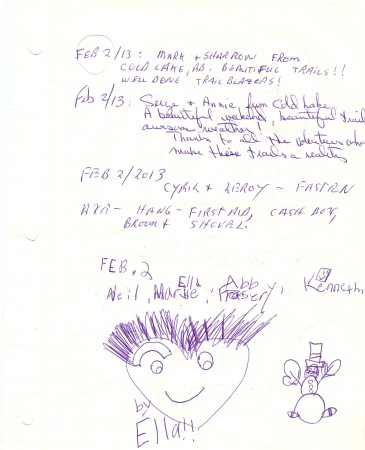 FEB 2/13: MARK & SHARRON FROM
COLD LAKE, AB. BEAUTIFUL TRAILS!!
WELL DONE TRAIL BLAZERS!
Feb 2/13: & Annie from Cold Lake
A beautiful weekend, beautiful trails
awesome weather
Thanks to all the volunteers who
make these trails a reality
FEB 2/2013
CYRIL & LEROY ~
HANG - FIRST AID, CASH BOX,
BROOM & SHOVEL.
FEB. 2
Ella Abby,
Neil, Kenneth
by
Ella!!